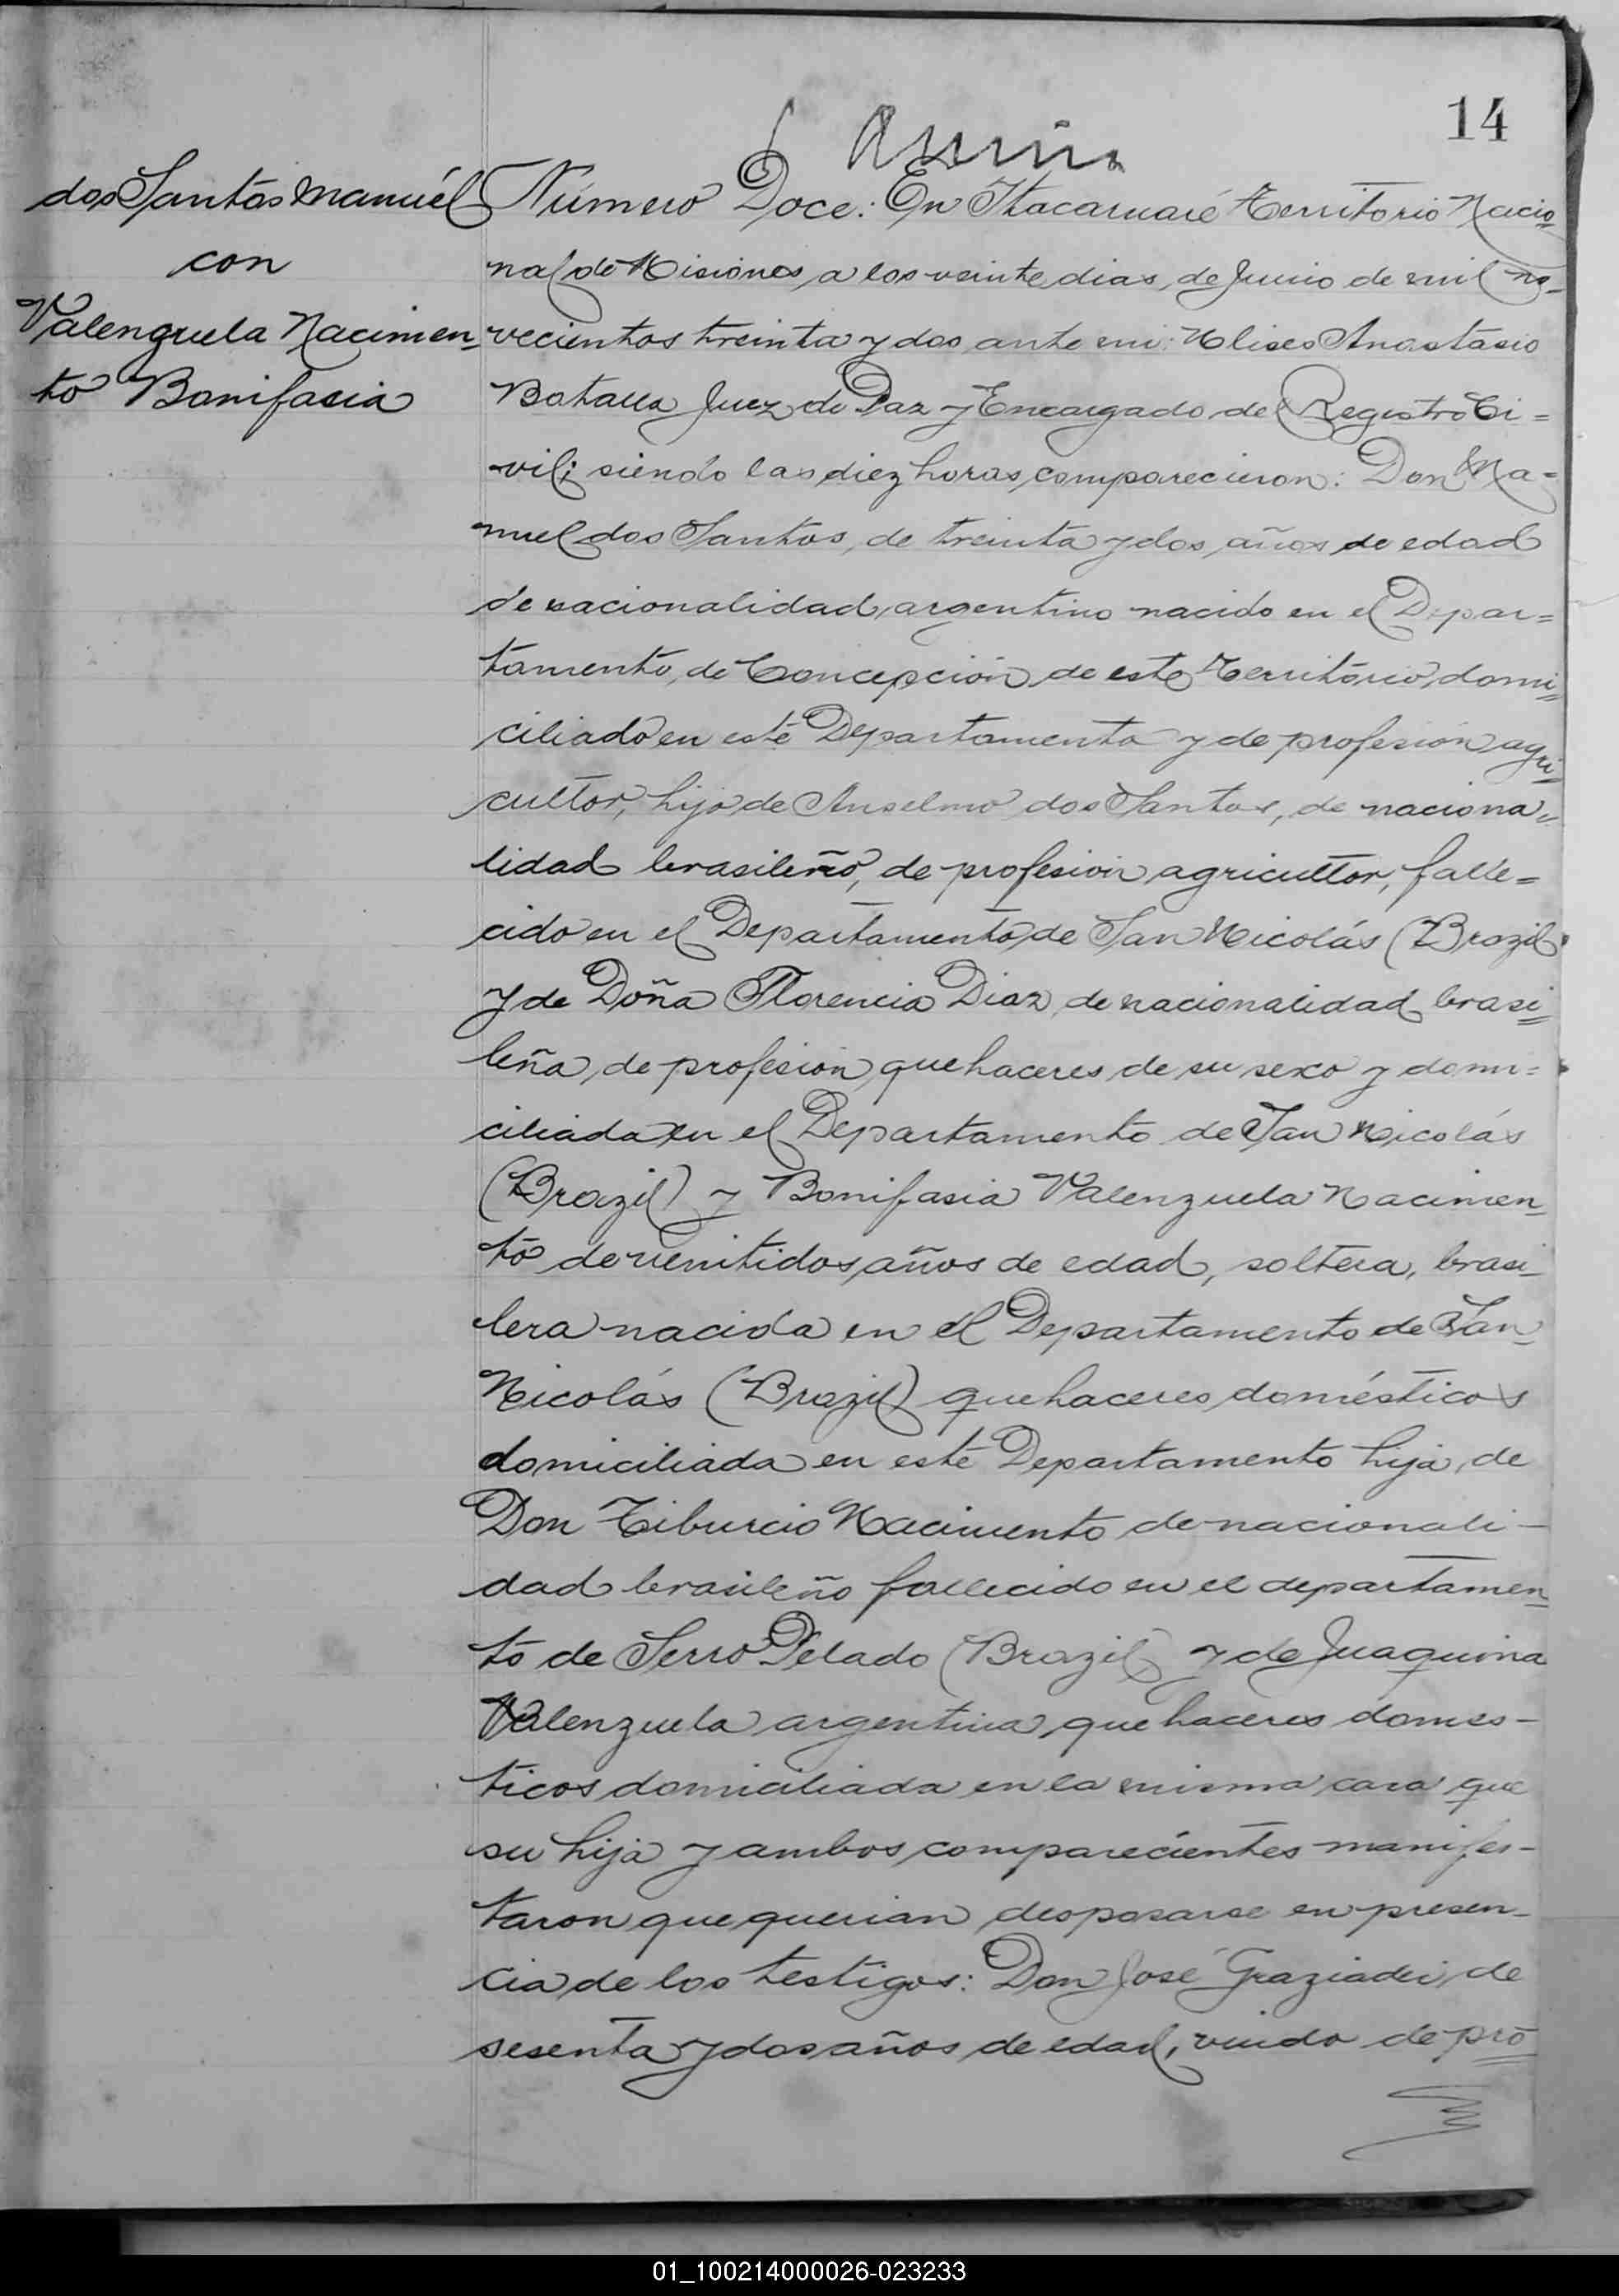 14
dos Santos Manuél
con
Valenzuela Nacimen-
to Bonifasia
Número Doce: En Itacaruaré Territorio Nacio=
nal de Misiones, a los veinte dias, de Junio de mil no-
vecientos treinta y dos, ante mi: Ulises Anastasio
Batalla Juez de Paz y Encargado del Registro Ci=
vil; siendo las diez horas, comparecieron: Don Ma=
nuel dos Santos, de treinta y dos, años de edad
de nacionalidad, argentino nacido en el Depar=
tamento, de Concepción de este Territorio, domi=
ciliado en este Departamento y de profesión agri=
cultor, hijo de Anselmo dos Santos, de naciona=
lidad brasileño, de profesión agricultor, falle=
cido en el Departamento de San Nicolás (Brazil
y de Doña Florencia Diaz, de nacionalidad brasi=
leña, de profesión, quehaceres de su sexo y domi=
ciliada en el Departamento de San Nicolás
(Brazil) y Bonifasia Valenzuela Nacimen=
to de vienitidos, años de edad, soltera, brasi-
lera nacida en el Departamento de San-
Nicolás (Brazil) quehaceres domésticos
domiciliada en este Departamento hija, de
Don Tiburcio Nacimento de nacionali-
dad brasileño fallecido en el departamen=
to de Serro Pelado (Brazil) y de Juaquina
Valenzuela argentina, quehaceres domes-
ticos domiciliada en la misma casa que
su hija y ambos comparecientes manifes-
taron que querian desposarse en presen-
cia de los testigos: Don José Graziadei, de
sesenta y dos años de edad, viudo de pro=
01_100214000026-023233